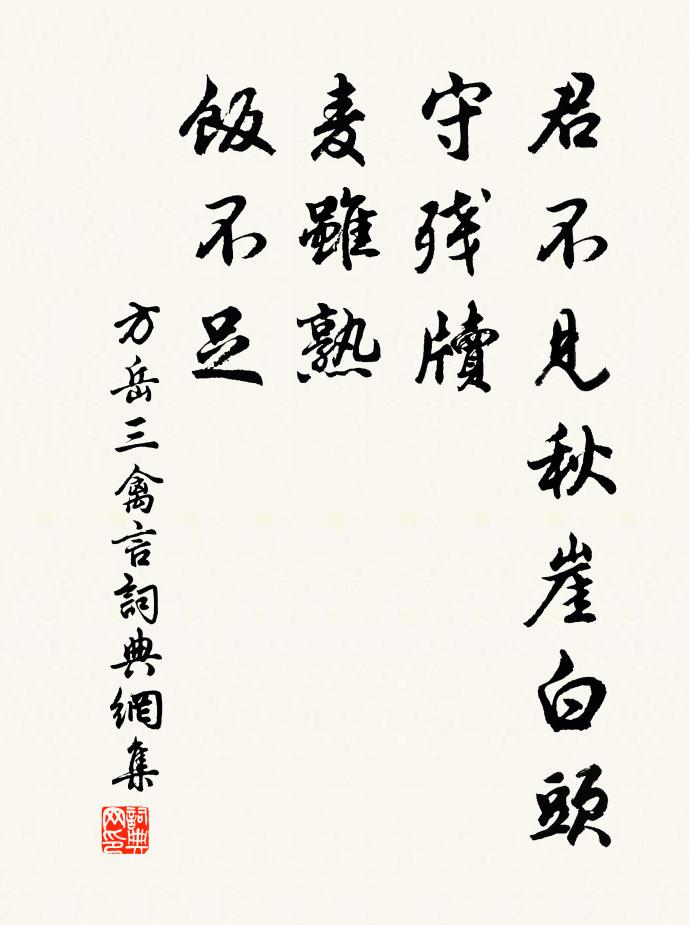 君不见秋崖白頭
守残牘
麦雖熟
飯不足
方岳三禽言詞典網集
詞典网印